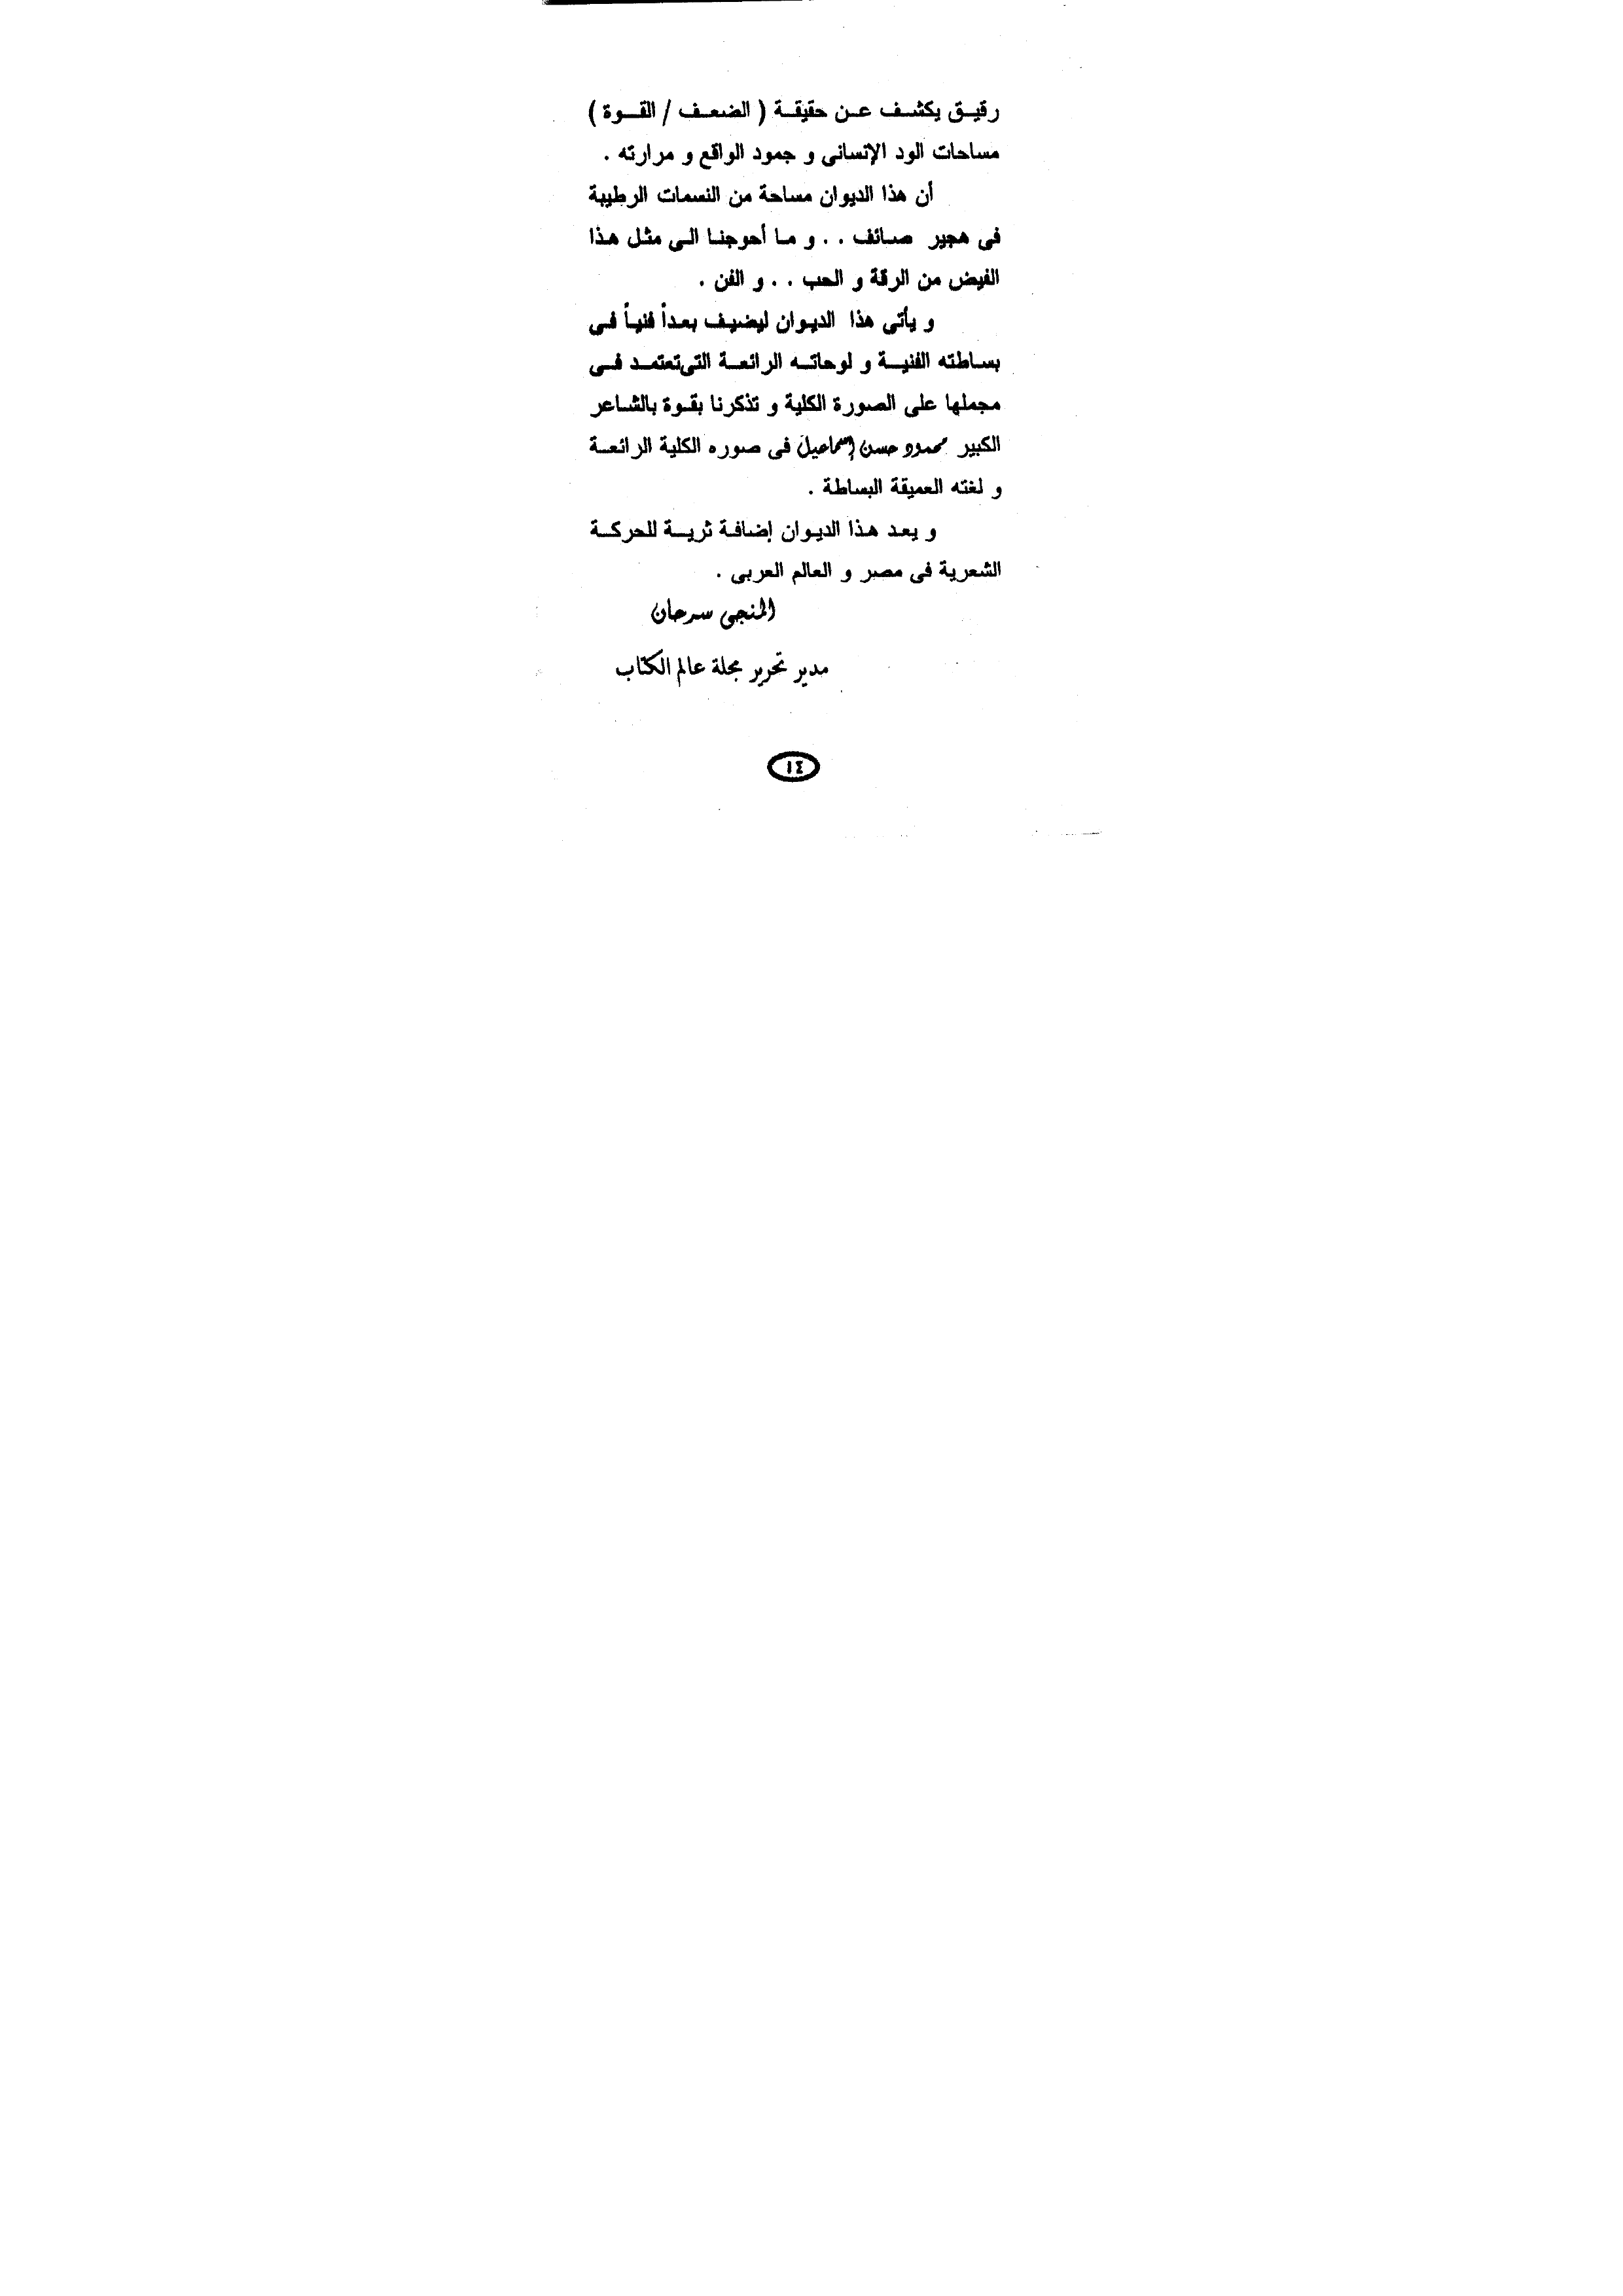 رقيق يكشف عن حقيقة ( الضعف / القوة )
مساحات الود الإنسانى و جمود الواقع و مرارته .
أن هذا الديوان مساحة من النسمات الرطيبة
فى هجير صائف . . و ما أحوجنا الى مثل هذا
الفيض من الرقة و الحب . . و الفن .
و يأتى هذا الديوان ليضيف بعداً فنياً فى
بساطته الفنية و لوحاته الرائعة التى تعتمد فى
مجملها على الصورة الكلية و تذكرنا بقوة بالشاعر
الكبير محمود حسن إسماعيل فى صوره الكلية الرائعة
و لغته العميقة البساطة .
و يعد هذا الديوان إضافة ثرية للحركة
الشعرية فى مصر و العالم العربى .
المنجى سرحان
مدير تحرير مجلة عالم الكتاب
١٤